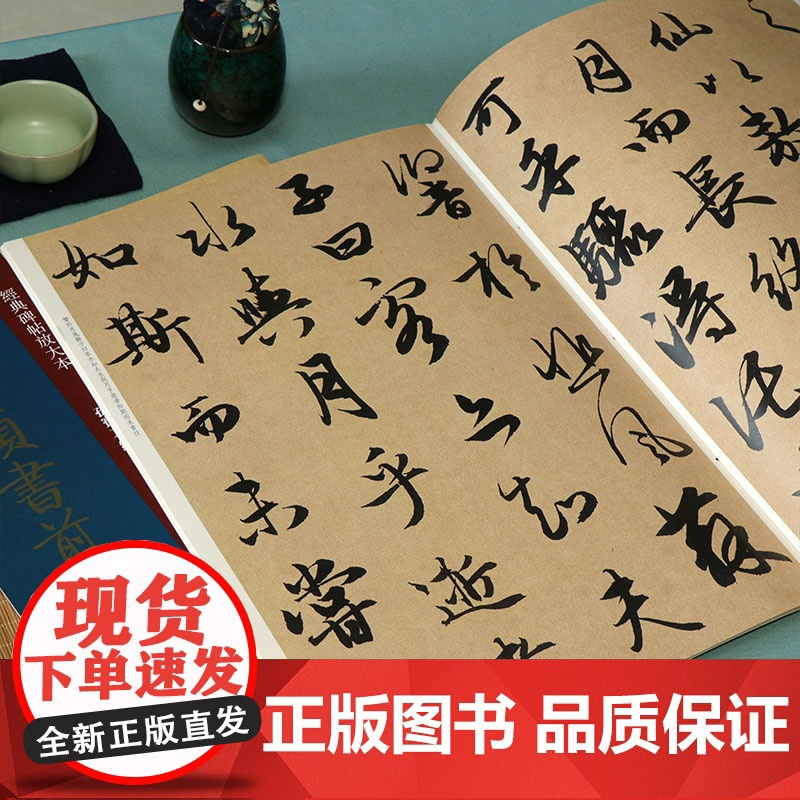 仙以遨
月而長終
可乎驟得託
響於悲風蘇
子曰客亦知夫
水與月乎逝者
如斯而未嘗
經典碑帖放大本
書前
现货
下单速发
全新正版直发
正版图书 品质保证